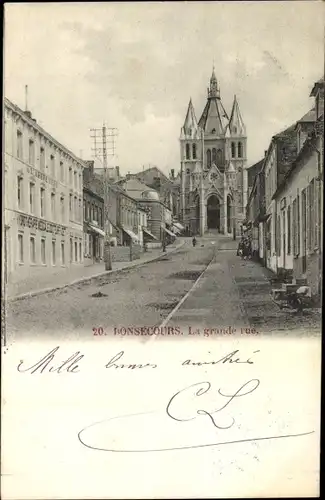 20. BONSECOURS. La grande rue.
Mille bonnes amitiés
CL